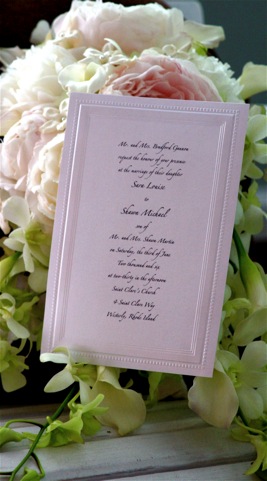 Mr. and Mrs. Bradford Gannon
request the honour of your presence
at the marriage of their daughter
Sara Louise
to
Shawn Michael
son of
Mr. and Mrs. Shawn Martin
on Saturday, the third of June
Two thousand and six
at two-thirty in the afternoon
Saint Clare's Church
4 Saint Clare Way
Westerly, Rhode Island